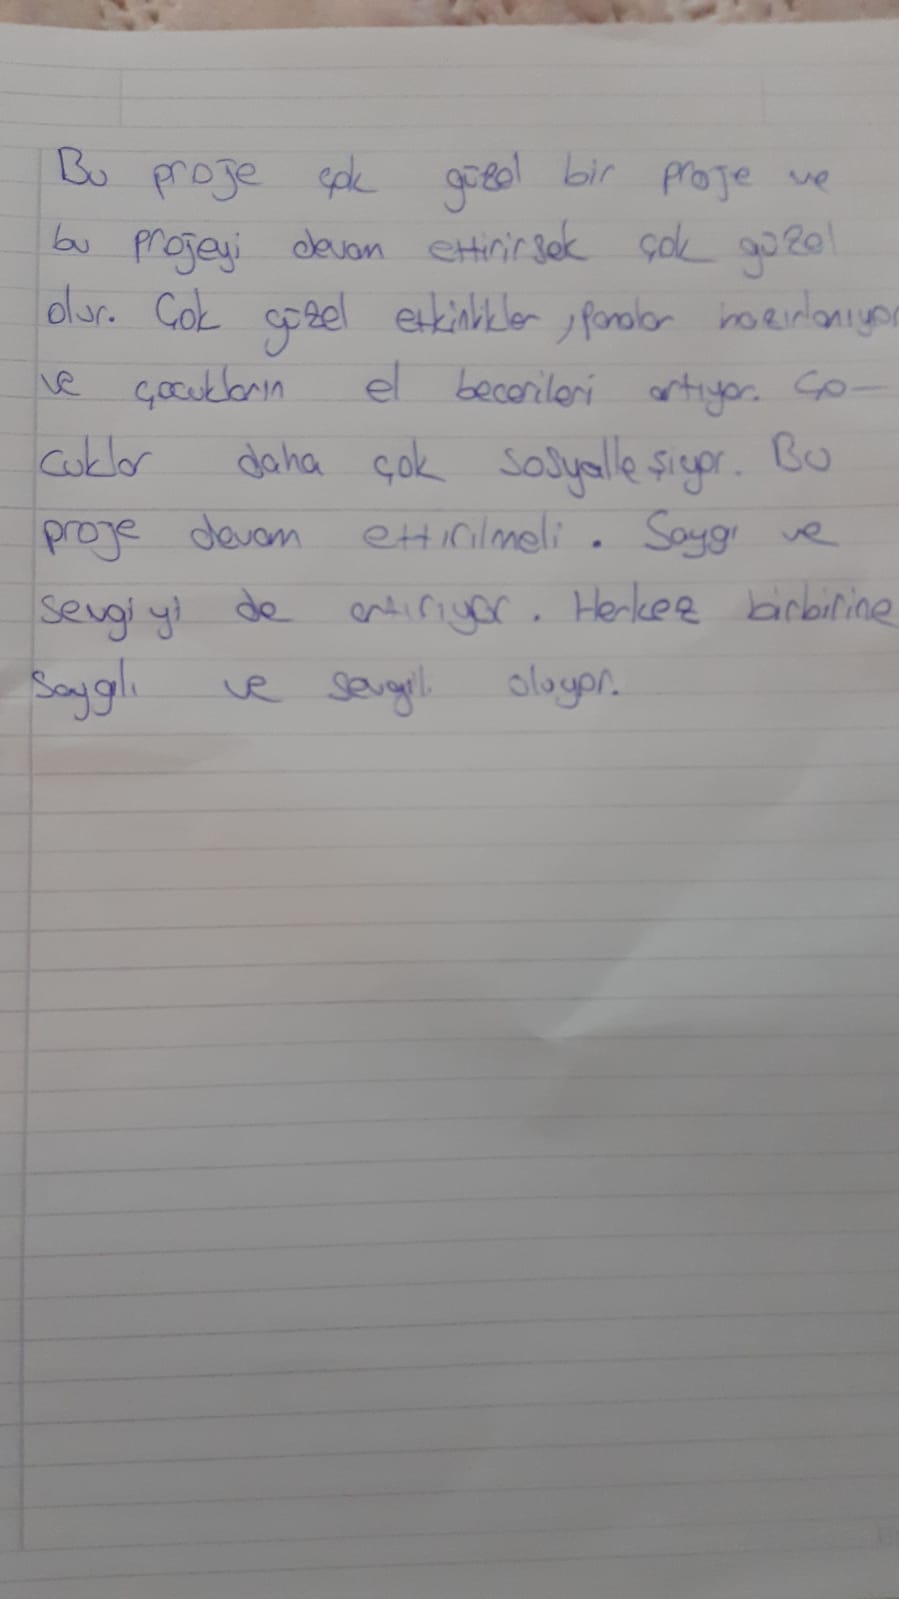 Bu proje çok güzel bir proje ve
bu projeyi devam ettirirsek çok güzel
olur. Çok güzel etkinlikler, panolar hazırlanıyor
ve çocukların el becerileri artıyor. Ço-
cuklar daha çok sosyalleşiyor. Bu
proje devam ettirilmeli. Saygı ve
sevgiyi de artırıyor. Herkez birbirine
saygılı ve sevgili oluyor.